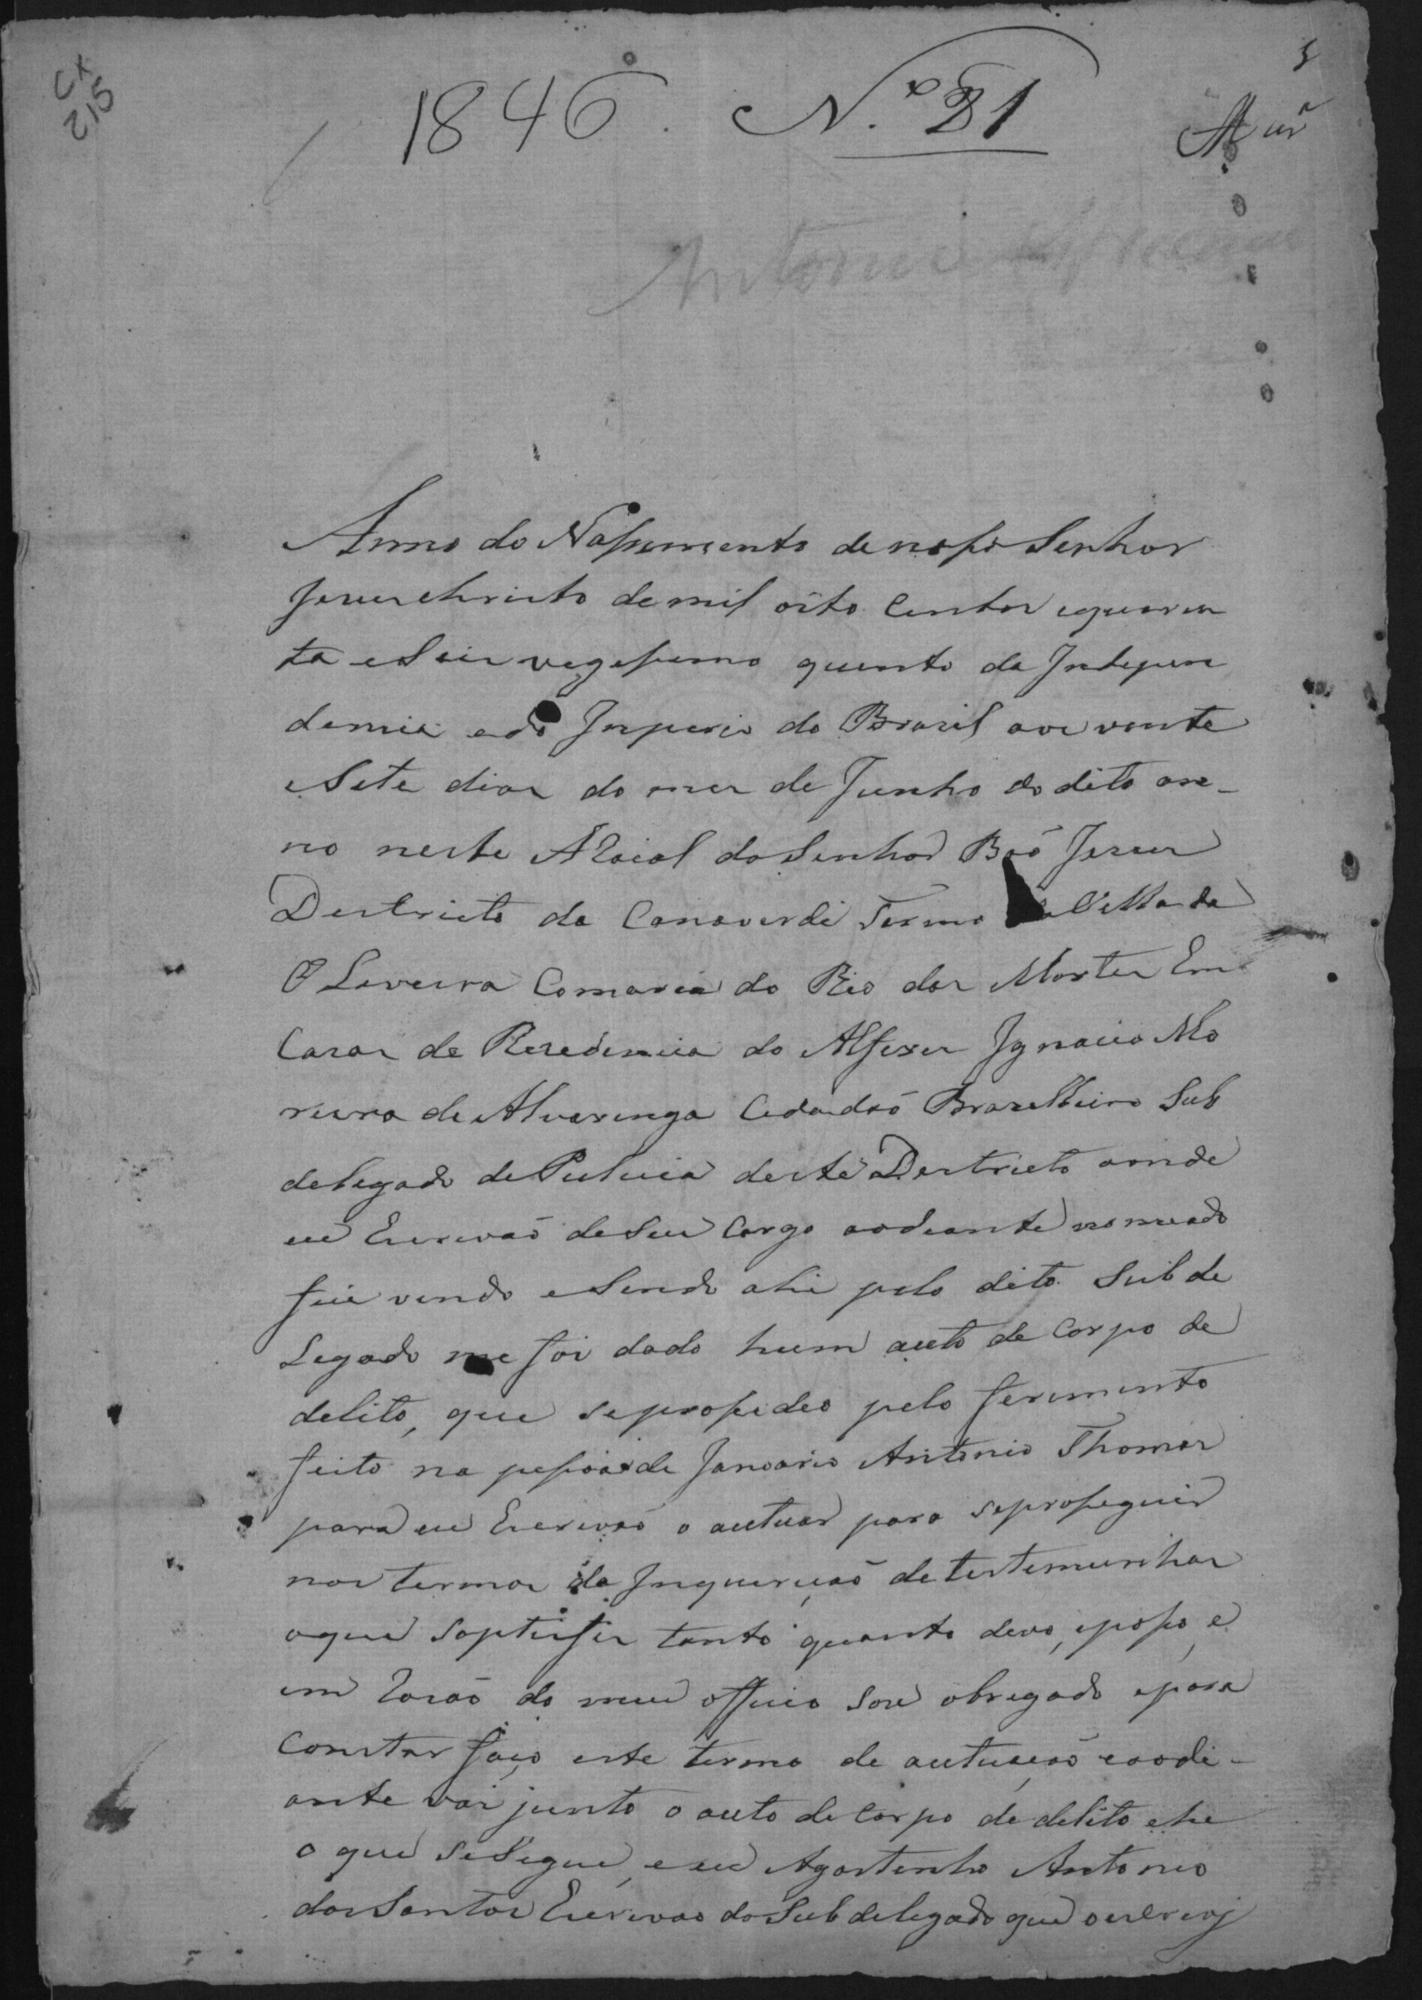 CX
215
1846. N.º 21
Anno do Nassimento de nosso Senhor
Jesus christo de mil oito Centos equaren
ta eSeis vegessimo quinto da Indepen
demcia edo Imperio do Brasil aos vinte
eSete dias do mes de Junho do dito an-
no neste ARaial do Senhor Bõo Jesus
Destricto da Canaverde Termo da Villa da
OLeveira Comarca do Rio das Mortes Em
Casas de Resedencia do Alferes Ignacio Mo
reira de Alvarenga Cedadão Brazilleiro Sub
delegado de Pulicia deste Destricto aonde
eu Escrivão de Seu Cargo aodiante nomeado
fui vindo eSendo ahi pelo dito Subde
Legado me foi dado hum auto de Corpo de
delito, que seprossedeo pelo ferimento
feito na pessoa de Januario Antonio Thomas
para eu Escrivão o autuar para seprosseguir
nos termos da Inquerição detestemunhas
oque Saptisfis tanto quanto devo, eposso, e
em Rasão do meu officio Sou obregado epara
Constar faço este termo de autuação eaodi-
ante vai junto o auto de Corpo de delito ehe
o que seSegue, eeu Agostinho Antonio
dos Santos Escrivão do Subdelegado que oescrevj